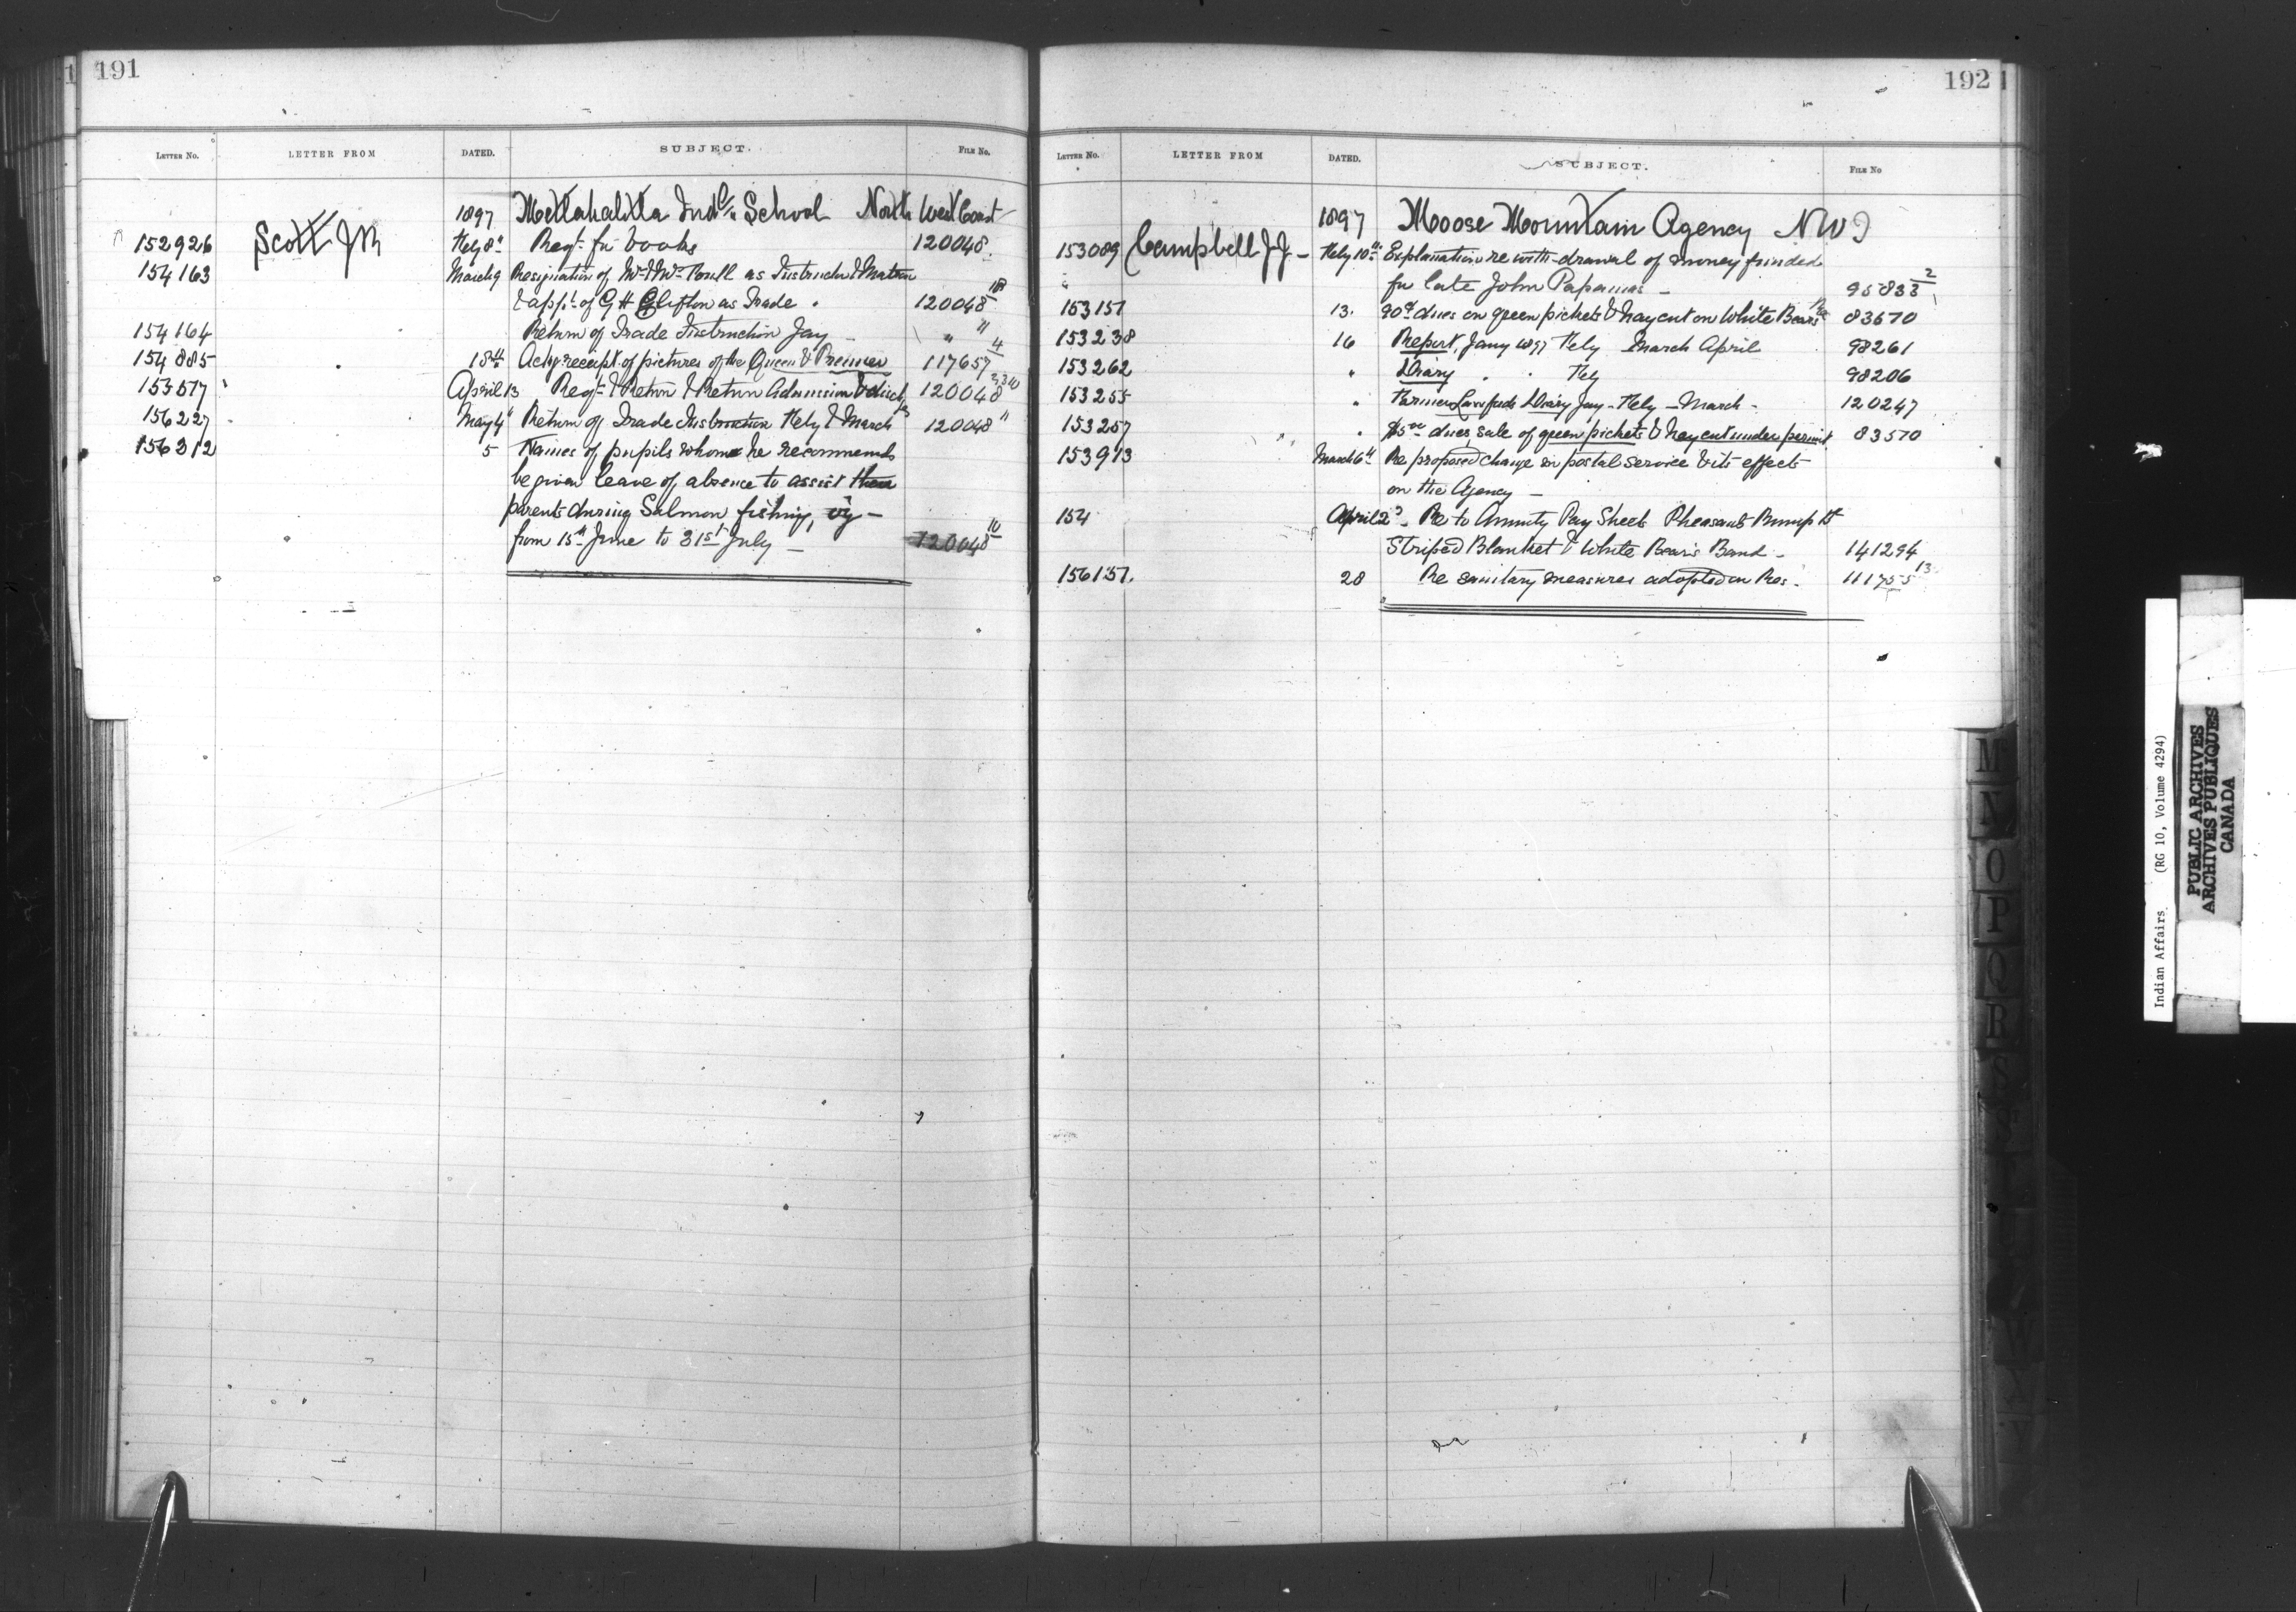 191
LETTER No. LETTER FROM DATED. SUBJECT. FILE No.
1897 Metlahalitla Indl School North West Coast
152926 Scott JR Feby 8" Reqt for books 120048
154163 March 9 Resignation of Mr & Mrs as Instructor & Matron
& appt of G H Clifton as Trade " 120048 18
154164 Return of Trade Instruction Jay " 11
154885 18th Ackg receipt of pictures of the Queen & Premier 117657 4
153517 April 13 Reqt & Return & Return Admission & disch 120048
156227 May 4" Return of Trade Instruction Feby & March 120048 11
156312 5 Names of pupils whom he recommends
be given leave of absence to assist their
parents during Salmon fishing, viz —
from 15th June to 31st July — 120048 10
192
LETTER No. LETTER FROM DATED. SUBJECT. FILE No
1897 Moose Mountain Agency NWT
153089 Campbell J J — Feby 10th Explanation re with-drawal of money funded
" for late John — 95833 2
153151 13. 90cts dues on green pickets & hay cut on White Bears Res 83570
153238 16 Report, Jany 1897 Feby March April 98261
153262 " Diary " " Feby 98206
153255 " Farmer Diary Jay - Feby - March - 120247
153257 " dues, sale of green pickets & hay cut under permit 83570
153913 March 6th Re proposed change in postal service & its effects
on the Agency —
154 April 2d — Re to Annuity Pay Sheets Pheasant Rump Bd
Striped Blanket & White Bear's Band — 141294
156151. 28 Re sanitary measures adopted on Res. 111755 13
M
N
O
P
Q
R
S
W
Y
Indian Affairs. (RG 10, Volume 4294)
PUBLIC ARCHIVES
ARCHIVES PUBLIQUES
CANADA